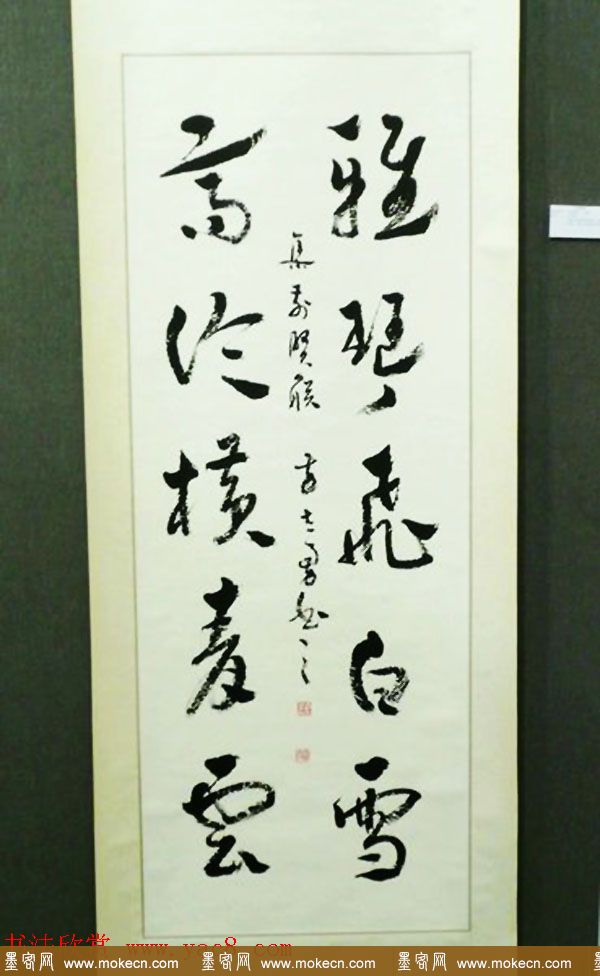 雅琴飛白雪
高論橫雲
集前賢聯
书法欣赏 www.yac8.com
墨客网 www.mokecn.com 墨客网 www.mokecn.com 墨客网 www.mokecn.com